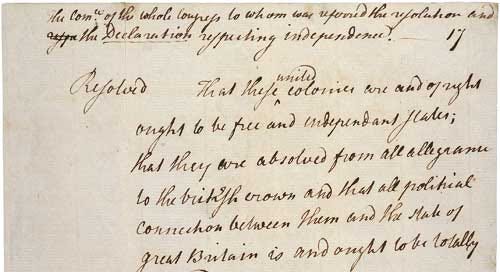 the Com.ee of the whole Congress to whom was referred the resolution and
respe the Declaration respecting independence. — 17
Resolved That these united colonies are and of right
ought to be free and independant states;
that they are absolved from all allegiance
to the british crown and that all political
connection between them and the state of
great Britain is and ought to be totally